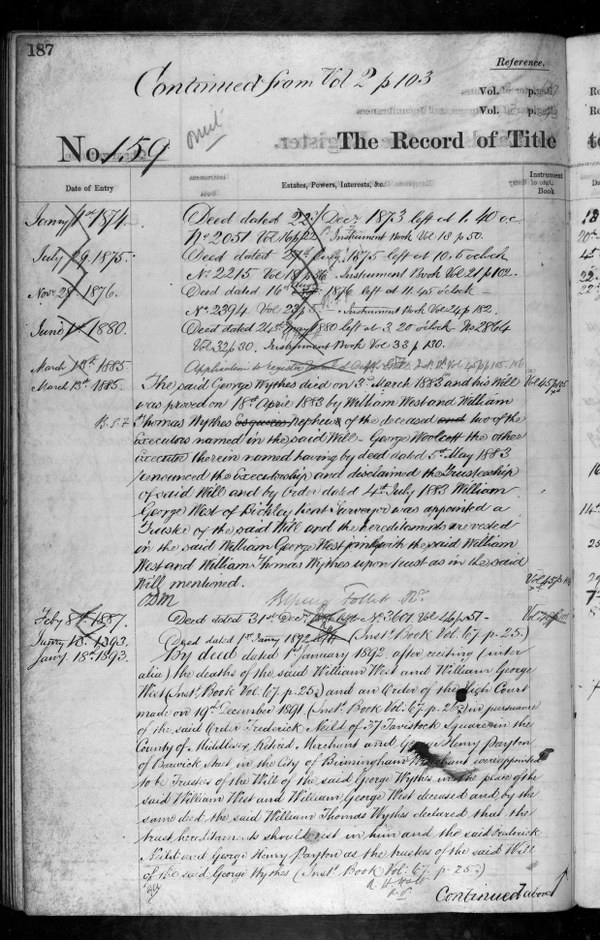 187
Reference.
Continued from Vol 2 p 103
Vol. p.
Vol. p.
No. 159 The Record of Title
Date of Entry Estates, Powers, Interests, &c. Instrument Book
January 1st 1874. Deed dated 22d Decr 1873 left at 1.40 o.c.
No 2051 Vol 16 p 22 Instrument Book Vol 18 p 50.
July 29 1875. Deed dated 27th July 1875 left at 10.5 oclock
No. 2215 Vol 18 p 86 Instrument Book Vol 21 p 102.
Novr 28 1876. Deed dated 16th 1876 left at 11.45 oclock
No. 2394 Vol 23 p Instrument Book Vol 24 p 182.
June 1st 1880. Deed dated 24th May 1880 left at 3.20 oclock No 2864
Vol 32 p 30. Instrument Book Vol 33 p 130.
March 13th 1885 Application to register
March 13th 1885. The said George Wythes died on 3rd March 1883 and his Will Vol 45 p
was proved on 18th April 1883 by William West and William
B.S.F Thomas Wythes Esquires Nephews of the deceased and two of the
Executors named in the said Will – George Woolcott the other
Executor therein named having by deed dated 5th May 1883
renounced the Executorship and disclaimed the Trusteeship
of said Will and by Order dated 4th July 1883 William
George West of Bickley Kent Surveyor was appointed a
Trustee of the said Will and the hereditaments are vested
in the said William George West jointly with the said William
West and William Thomas Wythes upon trust as in the said
Will mentioned. Vol 45 p
Follett
Feby 8th 1887. Deed dated 31st Decr No 3601 Vol 44 p 51 –
18. 1893. Deed dated 1st Jany 1892 (Inst. Book Vol. 67. p. 25.)
Jany 18th 1893. By deed dated 1st January 1892, after reciting (inter
alia) the deaths of the said William West and William George
West (Inst. Book Vol. 67 p. 25.) and an Order of the High Court
made on 19th December 1891 (Inst. Book Vol. 67. p. 26) in pursuance
of the said Order Frederick Neild of 37 Tavistock Square in the
County of Middlesex, Retired Merchant and George Henry Payton
of Barwick Street in the City of Birmingham Merchant were appointed
to be Trustees of the Will of the said George Wythes in the place of the
said William West and William George West deceased and by the
same deed the said William Thomas Wythes declared that the
trust hereditaments should vest in him and the said Frederick
Neild and George Henry Payton as the trustees of the said Will
of the said George Wythes (Inst. Book Vol. 67. p. 25.)
Continued above